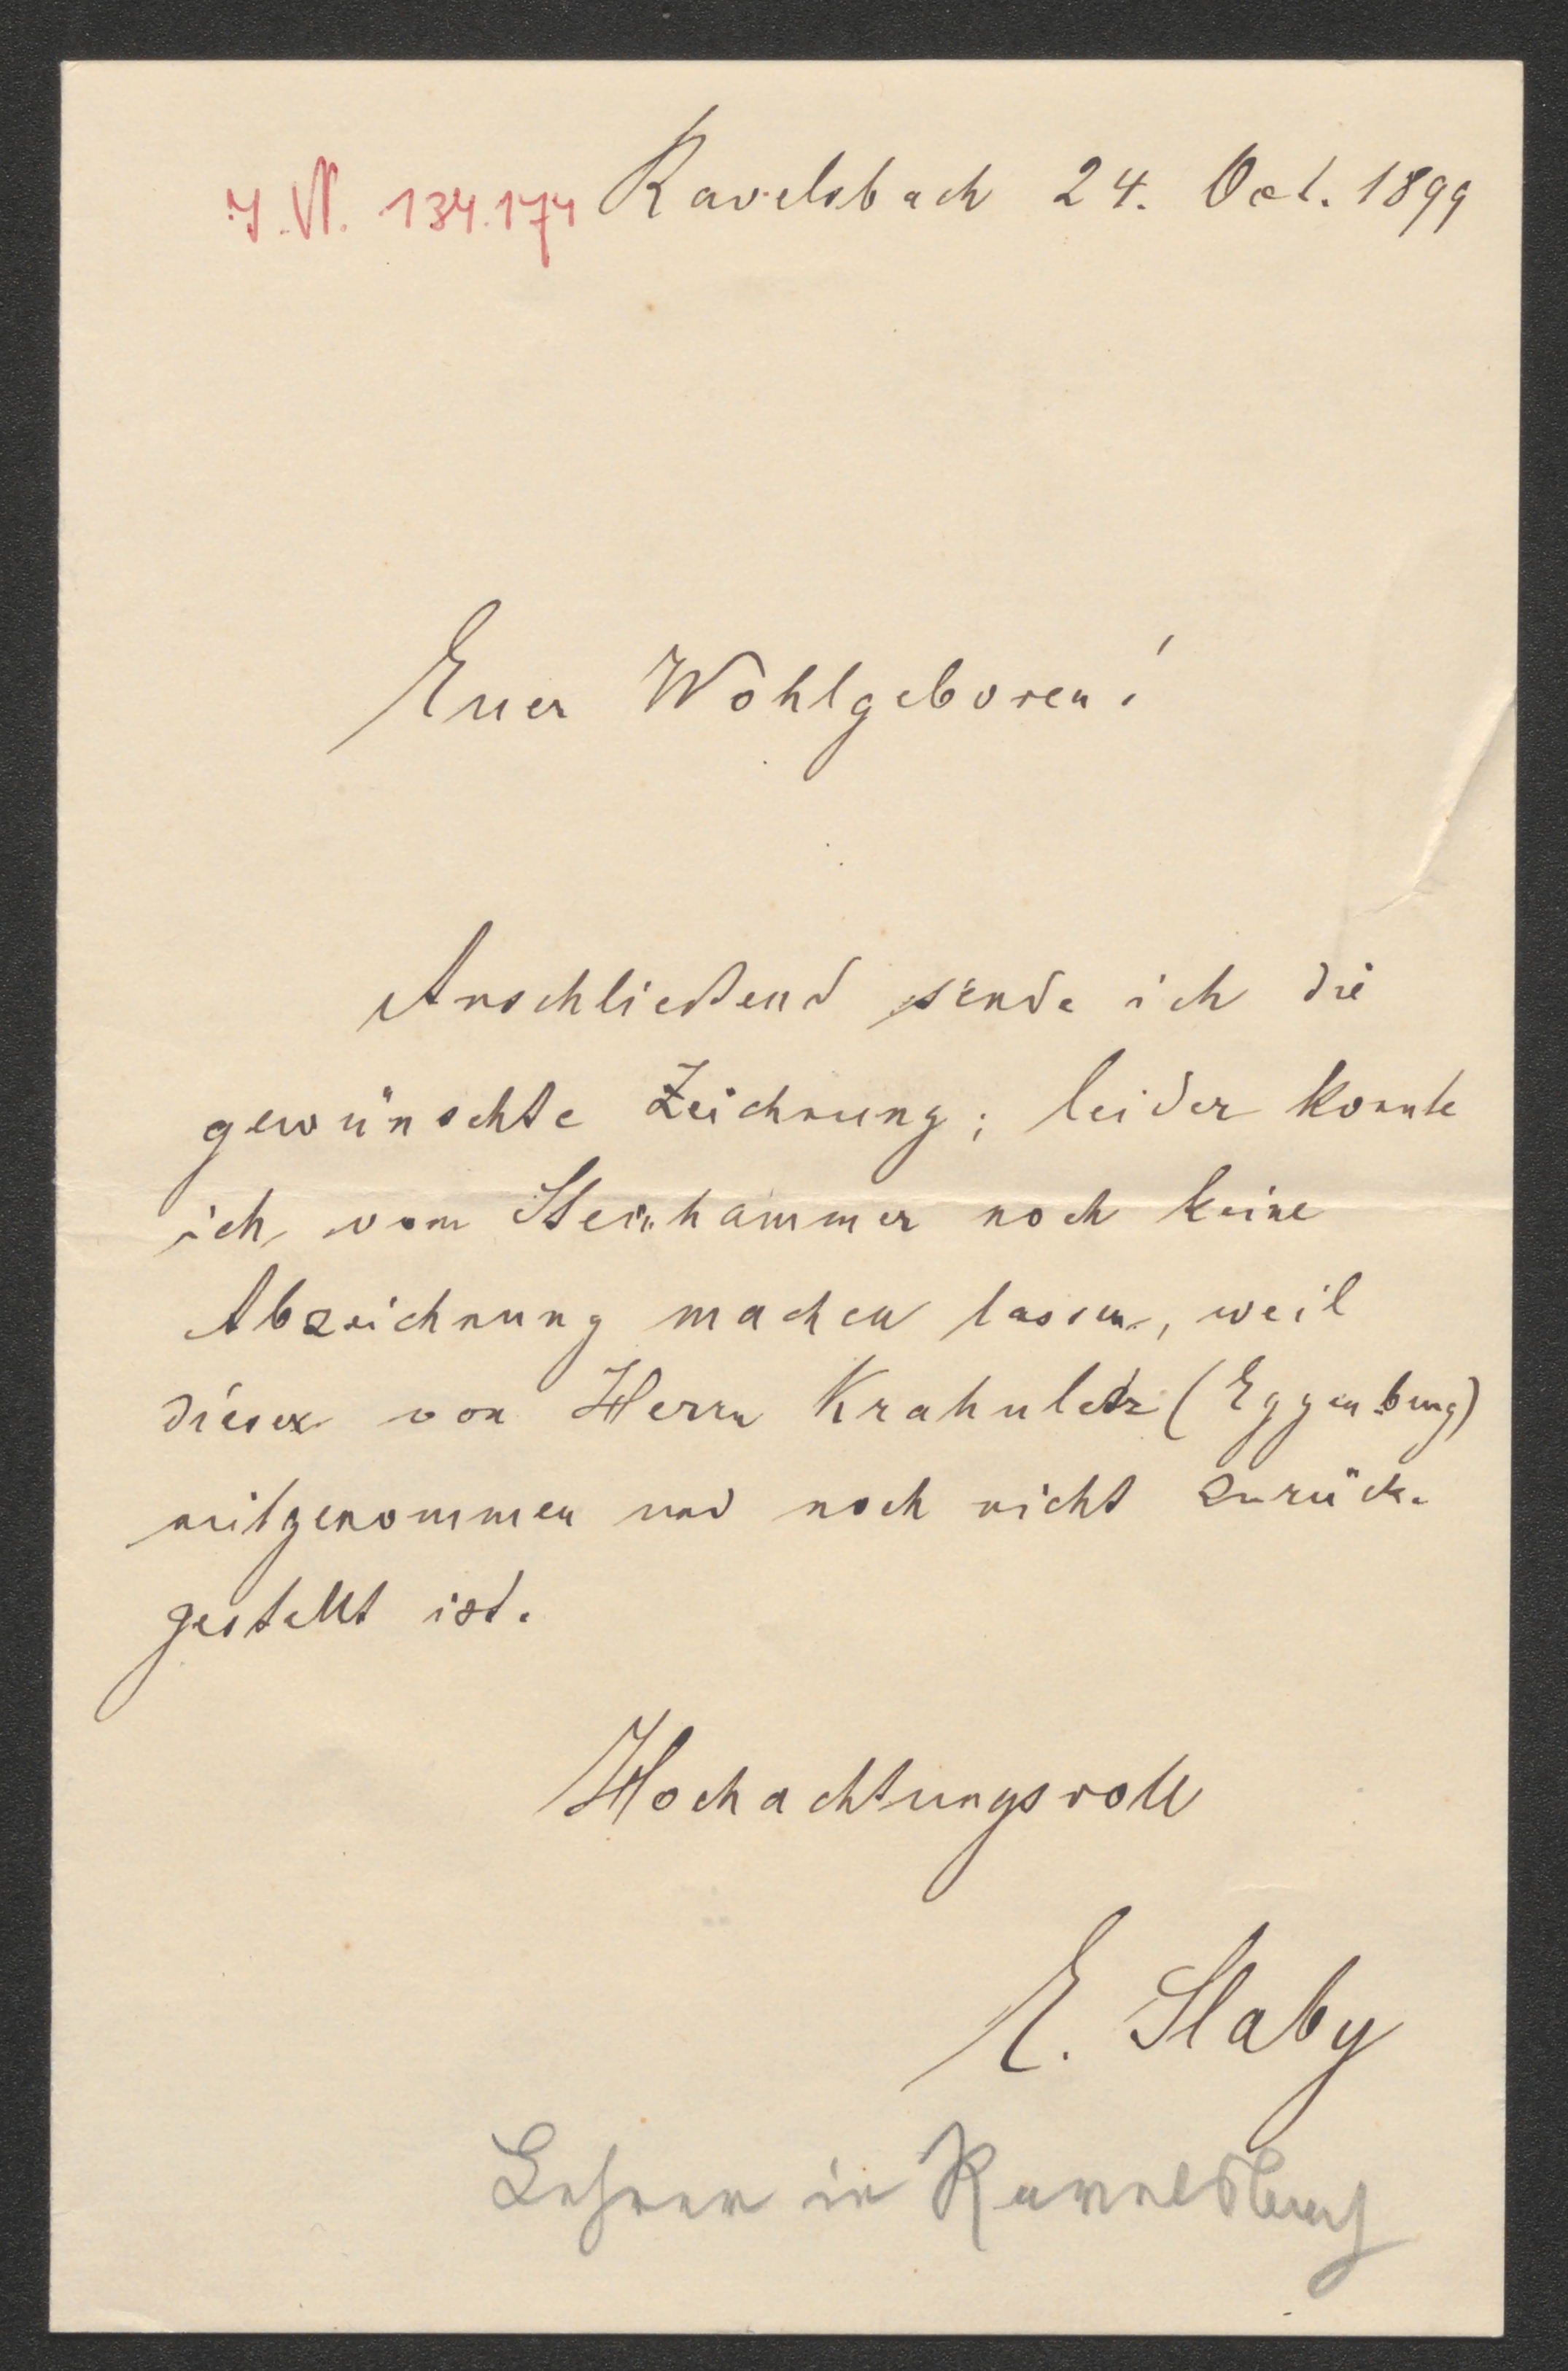 J.N. 134.174 Ravelsbach 24. Oct. 1899
Euer Wohlgeboren!
Anschließend sende ich die
gewünschte Zeichnung; leider konnte
ich vom Steinhammer noch keine
Abzeichnung machen lassen, weil
dieser von Herrn Krahuletz (Eggenburg)
mitgenommen und noch nicht zurück-
gestellt ist.
Hochachtungsvoll
E. Slaby
Lehrer in Ravelsbach